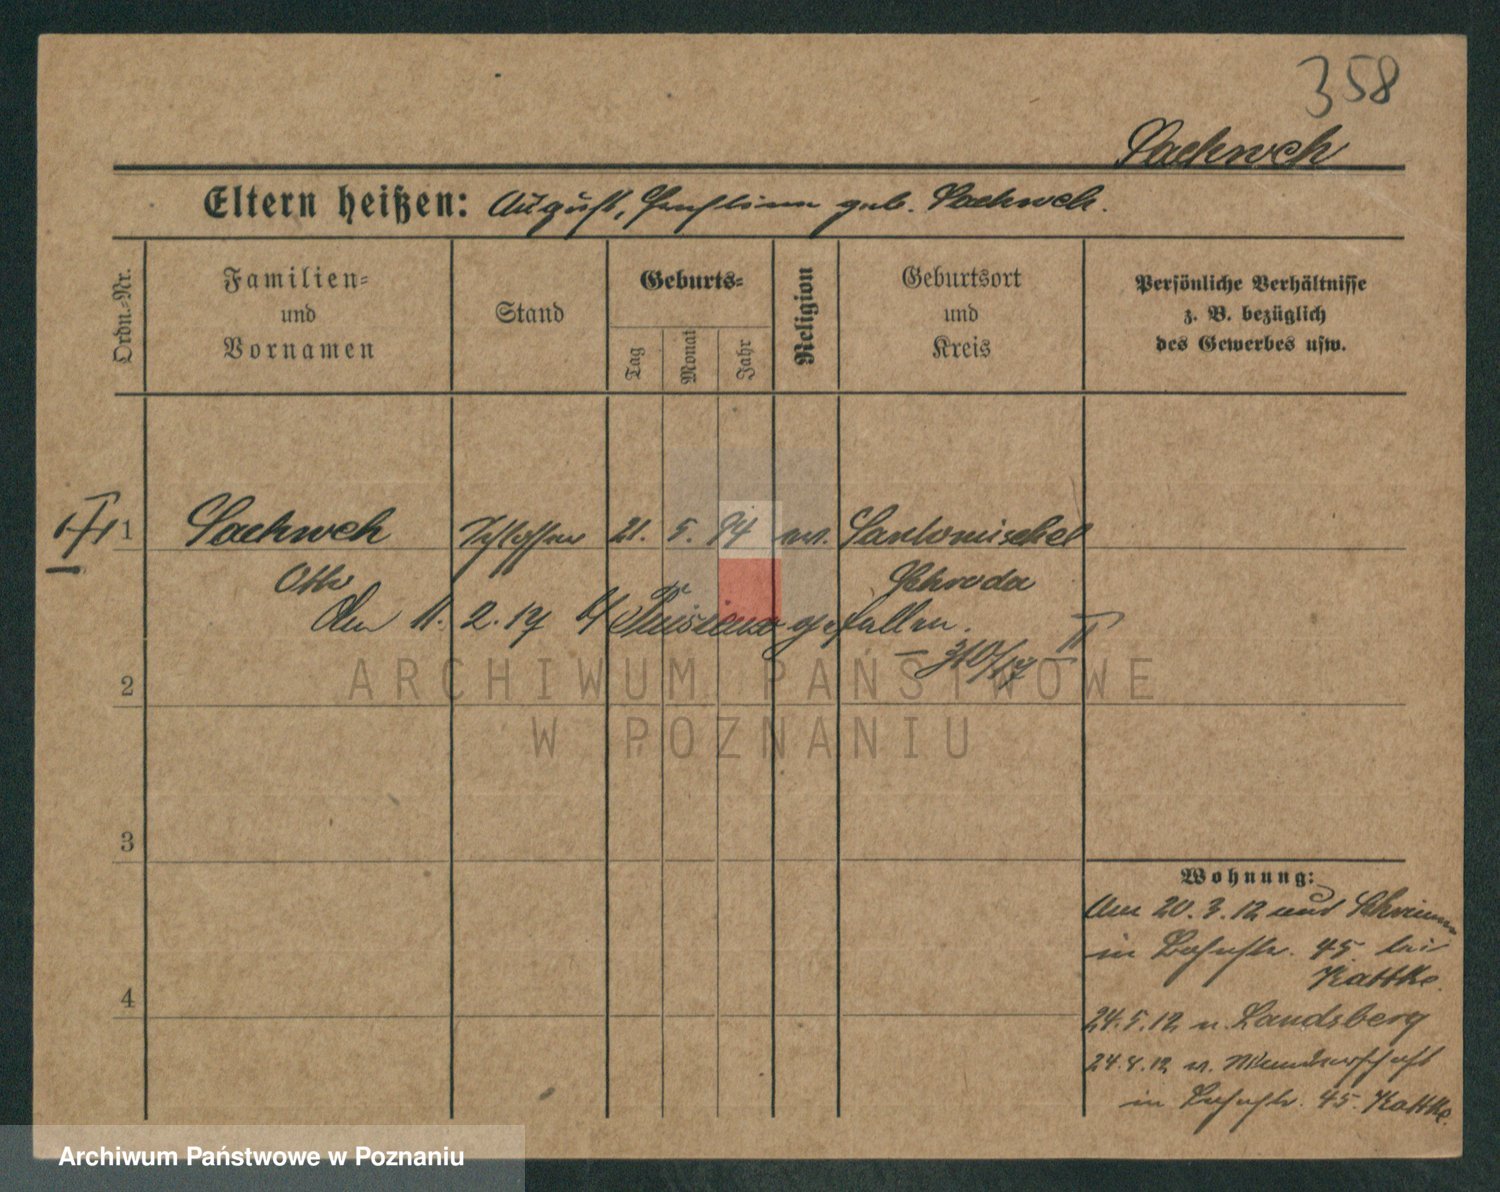 358
Sackweh
Eltern heißen: August, geb. Sackweh.
Ordn.-Nr.
Familien-
und
Vornamen
Stand
Geburts-
Tag
Monat
Jahr
Religion
Geburtsort
und
Kreis
Persönliche Verhältnisse
z. B. bezüglich
des Gewerbes usw.
1 Sackweh Schlosser 21. 5. 94 ev. Santomischel
Otto Schroda
Am 11. 2. 17 gefallen.
310/17 II
2
3
4
Wohnung:
Am 20. 3. 12 aus Schrimm
in Bahnstr. 45 bei
Kattke.
24. 5. 12 n. Landsberg
24. 8. 12 v. Wanderschaft
in Bahnstr. 45. Kattke.
ARCHIWUM PAŃSTWOWE
W POZNANIU
Archiwum Państwowe w Poznaniu